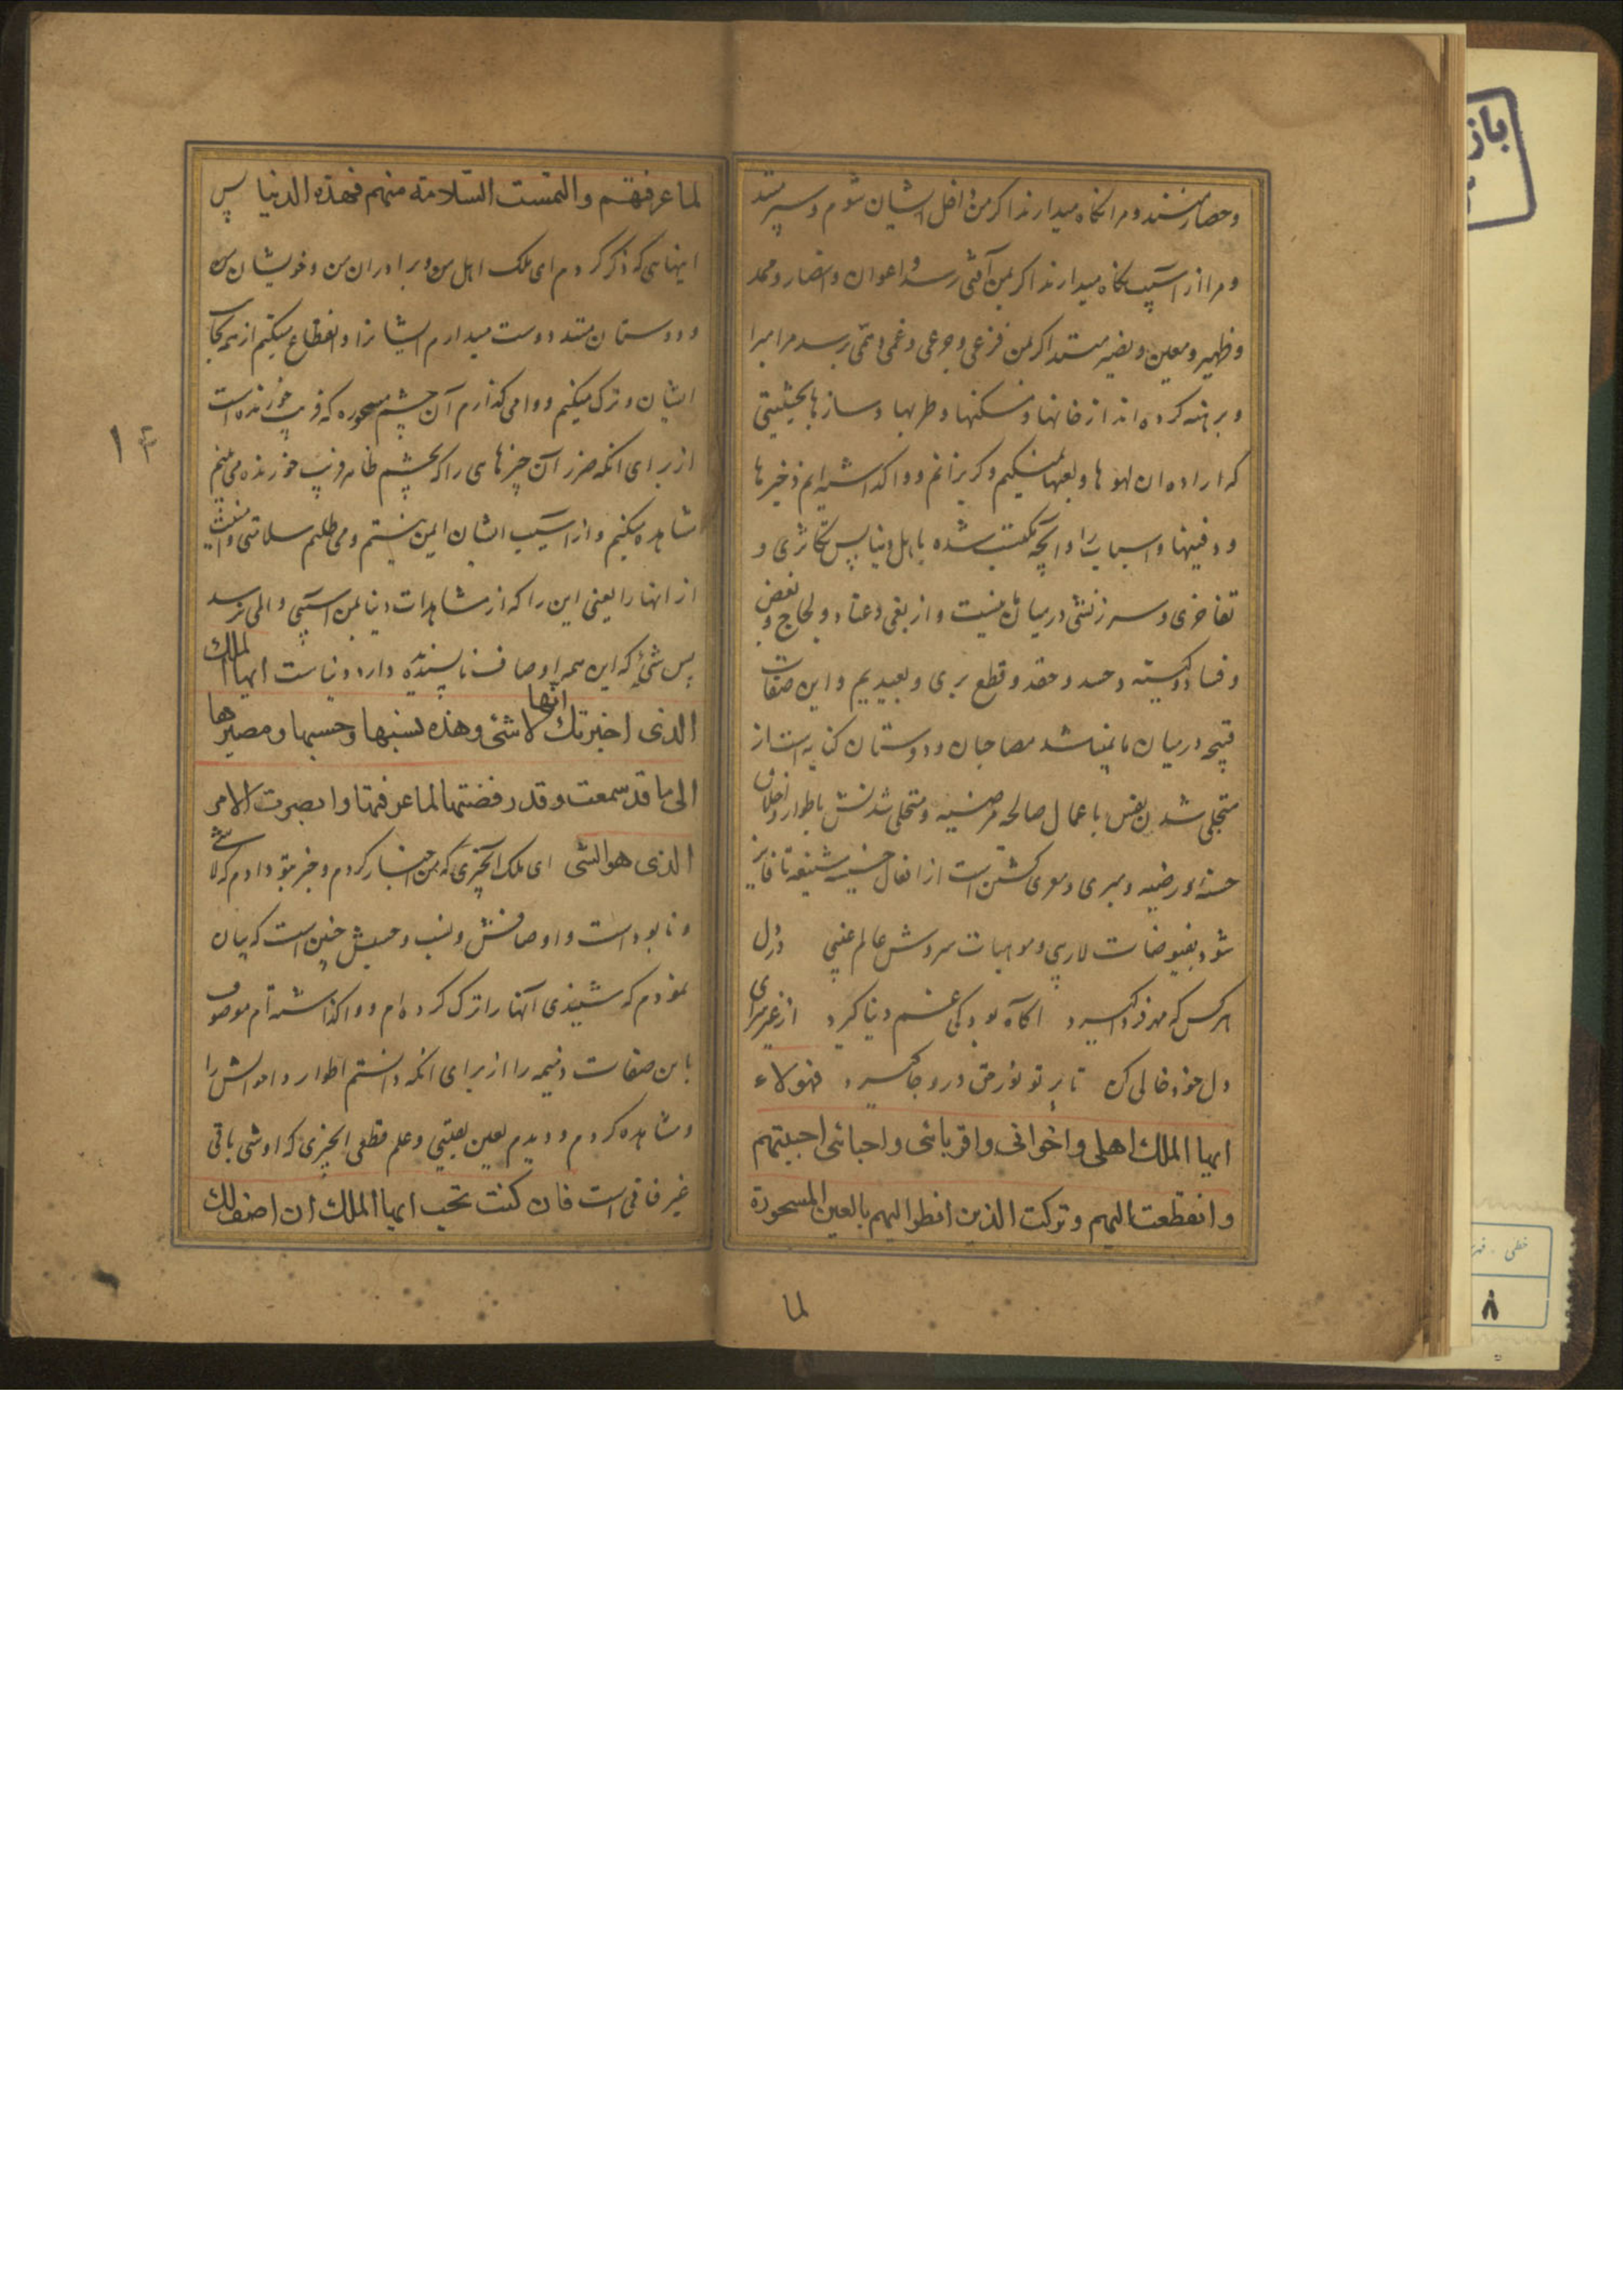 و حصار هستند و مرا نکاه میدارند اکر من داخل ایشان شوم و سپر هستند
و مرا از آسیب نکاه میدارند اکر بمن آفتی رسد و اعوان و انصار و ممد
و ظهیر و معین و نصیر هستند اکر بمن فزعی و جزعی و غمی و همی برسد مرا مبرا
و برهنه کرده اند از خانها و مسکنها و طربها و سازها بحیثیتی
که اراده ان لهوها و لعبها نمیکنم و کریزانم و واکذاشته ایم ذخیرها
و دفینها و اسباب را و آنچه مکتسب شده باهل دنیا پس تکاثری و
تفاخری و سرزنشی در میانه نیست و از بغی و عناد و لجاج و بغض
و فساد و کینه و حسد و حقد و قطع بری و بعیدیم و این صفات
قبیحه در میان ما نمیباشد مصاحبان و دوستان کنایه است از
متجلی شدن نفس باعمال صالحه مرضیه و متحلی شدنش باطوار و اخلاق
حسنه و رضیه و مبری و معری کشتن است از افعال خسیسه شنیعه تا فایز
شود بفیوضات لاریبی و موهبات سروش عالم غیبی در دل
هر کس که مهر فردا کیرد اکاه بود کی غم دنیا کیرد از غیر سرای
دل خود خالی کن تا پرتو نور حق درو جا کیرد فهولاء
ایها الملک اهلی و اخوانی و اقربائی و احبائی احببتهم
و انقطعت الیهم و ترکت الذین انظر الیهم بالعین المسحورة
لما
لما عرفتهم و التمست السلامة منهم فهذه الدنیا پس
اینهایی که ذکر کردم ای ملک اهل من و برادران من و خویشان من
و دوستان هستند دوست میدارم ایشانرا و انقطاع میکنم از همه بجانب
ایشان و ترک میکنم و وامی کذارم آن چشم مسحوره که فریب خورنده است
از برای انکه ضرر آن چیزهای را که بچشم ظاهر فریب خورنده می بینم
مشاهده میکنم و از آسیب ایشان ایمن نیستم و می طلبم سلامتی و امنیت
از انها را یعنی این را که از مشاهدات دنیا بمن آسیبی و المی نرسد
پس شئی که این همه اوصاف ناپسندیده دارد دنیاست ایها الملک
الذی اخبرتک انها لا شئ و هذه نسبها و حسبها و مصیرها
الی ما قد سمعت و قد رفضتها لما عرفتها و ابصرت الامر
الذی هو الشی ای ملک آنچیزی که من اخبار کردم و خبر بتو دادم که لا شئ
و نابود است و اوصافش و نسب و حسبش چنین است که بیان
نمودم که شنیدی آنها را ترک کرده ام و واکذاشته ام موصوف
باین صفات ذمیمه را از برای انکه دانستم اطوار و احوالش را
و مشاهده کردم و دیدم بعین یقینی و علم قطعی انچیزی که او شی باقی
غیر فانی است فان کنت تحب ایها الملک ان اصف لک
۱۳
باز
خطی
۸